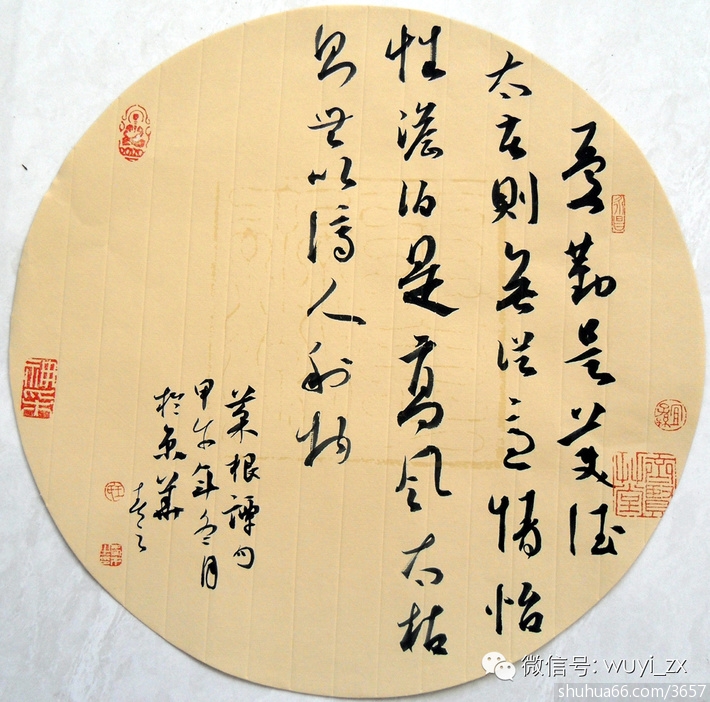 憂勤是美德
太苦則無從適情怡
性澹泊是高風太枯
則無以濟人利物
菜根譚句
甲午年冬月
於京華
微信号: wuyi_zx
shuhua66.com/3657